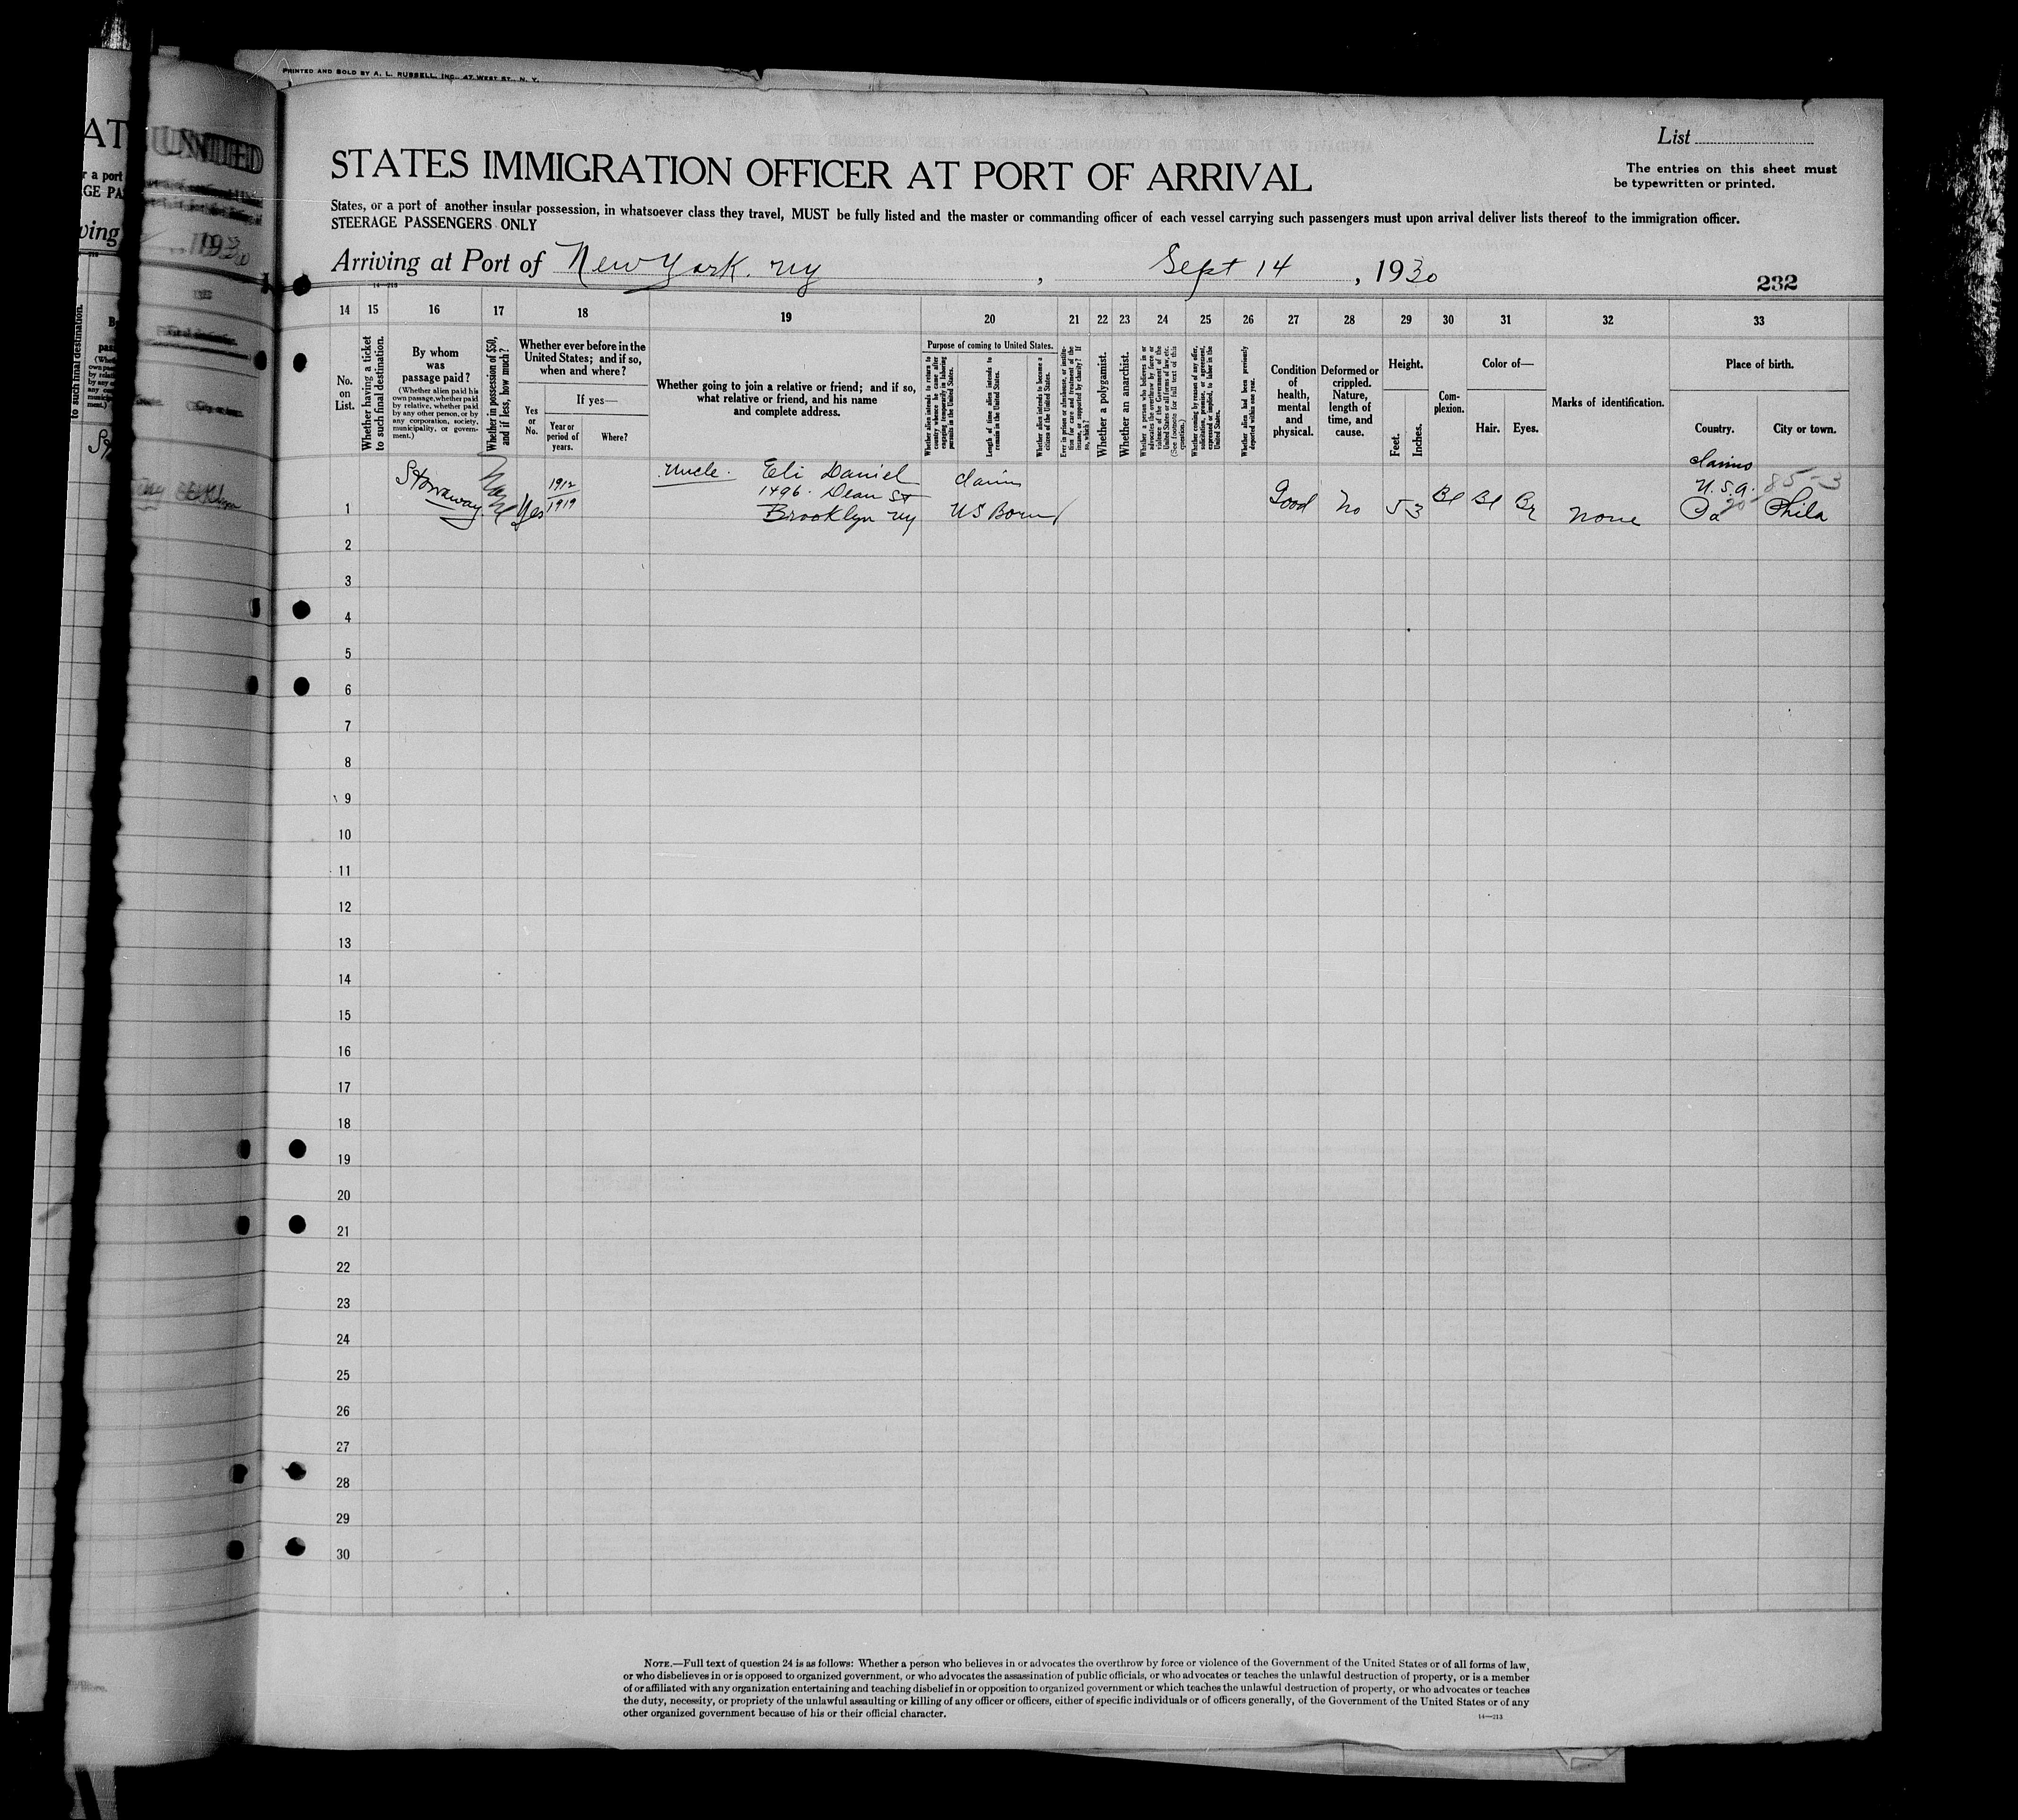 PRINTED AND SOLD BY A. L. RUSSELL, INC., 47 WEST ST., N. Y.
List
STATES IMMIGRATION OFFICER AT PORT OF ARRIVAL
The entries on this sheet must
be typewritten or printed.
States, or a port of another insular possession, in whatsoever class they travel, MUST be fully listed and the master or commanding officer of each vessel carrying such passengers must upon arrival deliver lists thereof to the immigration officer.
STEERAGE PASSENGERS ONLY
Arriving at Port of New York. NY, Sept 14, 1930
232
14—213
14 15 16 17 18 19 20 21 22 23 24 25 26 27 28 29 30 31 32 33
No. on List.
Whether having a ticket to such final destination.
By whom was passage paid?
(Whether alien paid his own passage, whether paid by relative, whether paid by any other person, or by any corporation, society, municipality, or government.)
Whether in possession of $50, and if less, how much?
Whether ever before in the United States; and if so, when and where?
Yes or No.
If yes—
Year or period of years.
Where?
Whether going to join a relative or friend; and if so, what relative or friend, and his name and complete address.
Purpose of coming to United States.
Whether alien intends to return to country whence he came after engaging temporarily in laboring pursuits in the United States.
Length of time alien intends to remain in the United States.
Whether alien intends to become a citizen of the United States.
Ever in prison or almshouse, or institution for care and treatment of the insane, or supported by charity? If so, which?
Whether a polygamist.
Whether an anarchist.
Whether a person who believes in or advocates the overthrow by force or violence of the Government of the United States or all forms of law, etc. (See footnote for full text of this question.)
Whether coming by reason of any offer, solicitation, promise, or agreement, expressed or implied, to labor in the United States.
Whether alien had been previously deported within one year.
Condition of health, mental and physical.
Deformed or crippled. Nature, length of time, and cause.
Height.
Feet.
Inches.
Complexion.
Color of—
Hair.
Eyes.
Marks of identification.
Place of birth.
Country.
City or town.
1 Stowaway None Yes 1912 1919
uncle. Eli Daniel
1496. Dean St
Brooklyn NY
claims
US Born
Good No 5 3 Bl Bl Br none
claims
U.S.A.
Pa Phila
85-3
2
3
4
5
6
7
8
9
10
11
12
13
14
15
16
17
18
19
20
21
22
23
24
25
26
27
28
29
30
NOTE.—Full text of question 24 is as follows: Whether a person who believes in or advocates the overthrow by force or violence of the Government of the United States or of all forms of law,
or who disbelieves in or is opposed to organized government, or who advocates the assassination of public officials, or who advocates or teaches the unlawful destruction of property, or is a member
of or affiliated with any organization entertaining and teaching disbelief in or opposition to organized government or which teaches the unlawful destruction of property, or who advocates or teaches
the duty, necessity, or propriety of the unlawful assaulting or killing of any officer or officers, either of specific individuals or of officers generally, of the Government of the United States or of any
other organized government because of his or their official character.
14—213